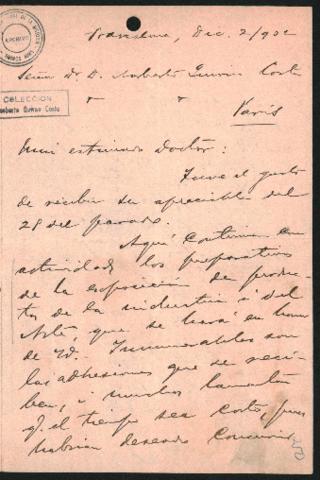 Barcelona, Dic. 2/902
Señor Dr. D. Roberto Levillier Costa
París
Mui estimado Doctor:
Tuve el gusto
de recibir su apreciable del
28 del pasado.
Aquí continúan con
actividad los preparativos
de la esposicion de produc-
tos de la industria i del
Arte, que se hará en honor
de Vd. Innumerables son
las adhesiones que se reci-
ben, i muchos lamentan
q. el tiempo sea corto, pues
habrian deseado concurrir
COLECCION